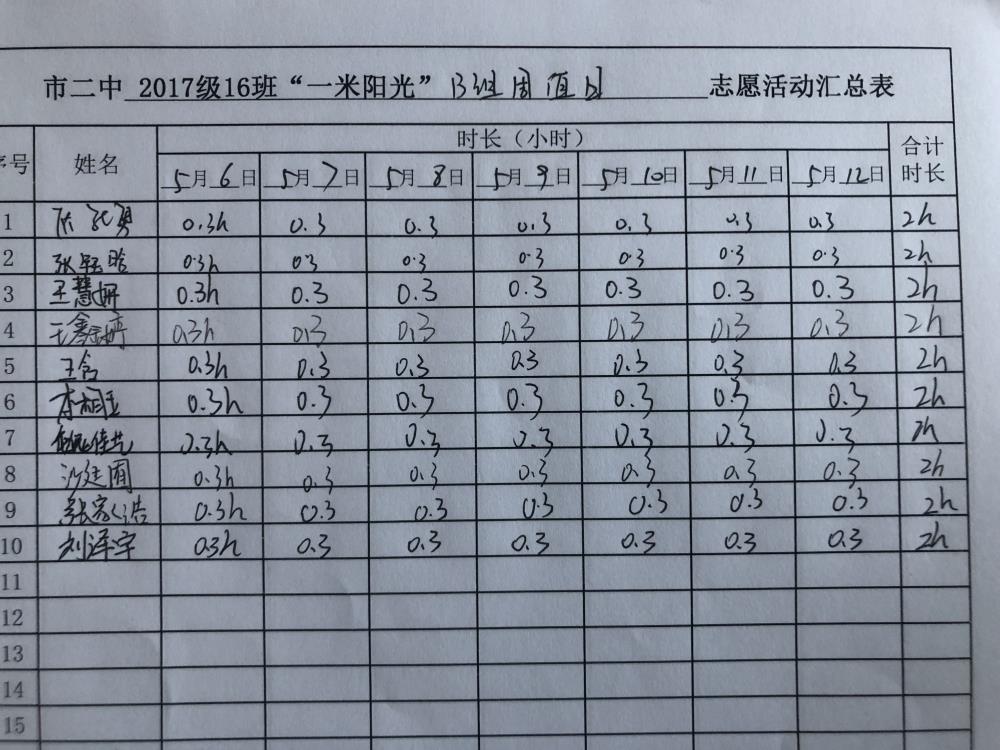 市二中 2017级16班“一米阳光” B组周值日 志愿活动汇总表
序号 姓名 时长（小时） 合计时长
5月6日 5月7日 5月8日 5月9日 5月10日 5月11日 5月12日
1 0.3h 0.3 0.3 0.3 0.3 0.3 0.3 2h
2 张钰晗 0.3h 0.3 0.3 0.3 0.3 0.3 0.3 2h
3 王慧妍 0.3h 0.3 0.3 0.3 0.3 0.3 0.3 2h
4 王鑫婷 0.3h 0.3 0.3 0.3 0.3 0.3 0.3 2h
5 王含 0.3h 0.3 0.3 0.3 0.3 0.3 0.3 2h
6 李相玉 0.3h 0.3 0.3 0.3 0.3 0.3 0.3 2h
7 0.3h 0.3 0.3 0.3 0.3 0.3 0.3 2h
8 0.3h 0.3 0.3 0.3 0.3 0.3 0.3 2h
9 张家浩 0.3h 0.3 0.3 0.3 0.3 0.3 0.3 2h
10 刘泽宇 0.3h 0.3 0.3 0.3 0.3 0.3 0.3 2h
11
12
13
14
15